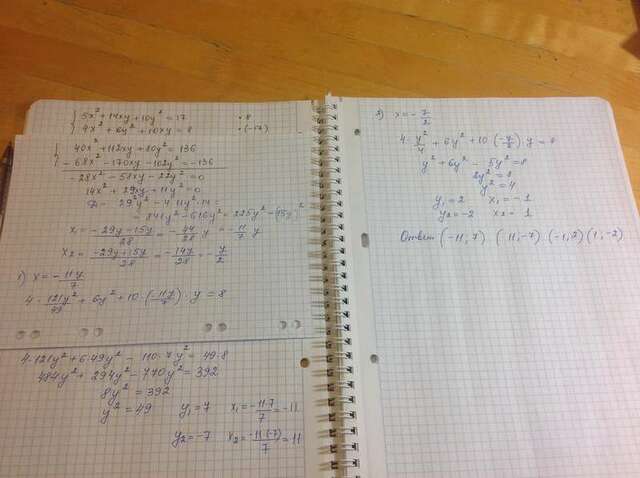 5x² + 14xy + 10y² = 17 | · 8
4x² + 6y² + 10xy = 8 | · (-17)
40x² + 112xy + 80y² = 136
-68x² - 170xy - 102y² = -136
-28x² - 58xy - 22y² = 0
14x² + 29xy + 11y² = 0
D = 29²y² - 4·11y²·14 =
= 841y² - 616y² = 225y² = (15y)²
x₁ = (-29y - 15y)/28 = -44/28 y = -11/7 y
x₂ = (-29y + 15y)/28 = -14y/28 = -y/2
1) x = -11y/7
4 · 121y²/49 + 6y² + 10 · (-11y/7) · y = 8
4·121y² + 6·49y² - 110·7y² = 49·8
484y² + 294y² - 770y² = 392
8y² = 392
y² = 49 y₁ = 7 x₁ = -11·7/7 = -11
y₂ = -7 x₂ = -11·(-7)/7 = 11
2) x = -y/2
4 · y²/4 + 6y² + 10 · (-y/2) y = 8
y² + 6y² - 5y² = 8
2y² = 8
y² = 4
y₁ = 2 x₁ = -1
y₂ = -2 x₂ = 1
Ответ (-11; 7) (11; -7) (-1; 2) (1; -2)